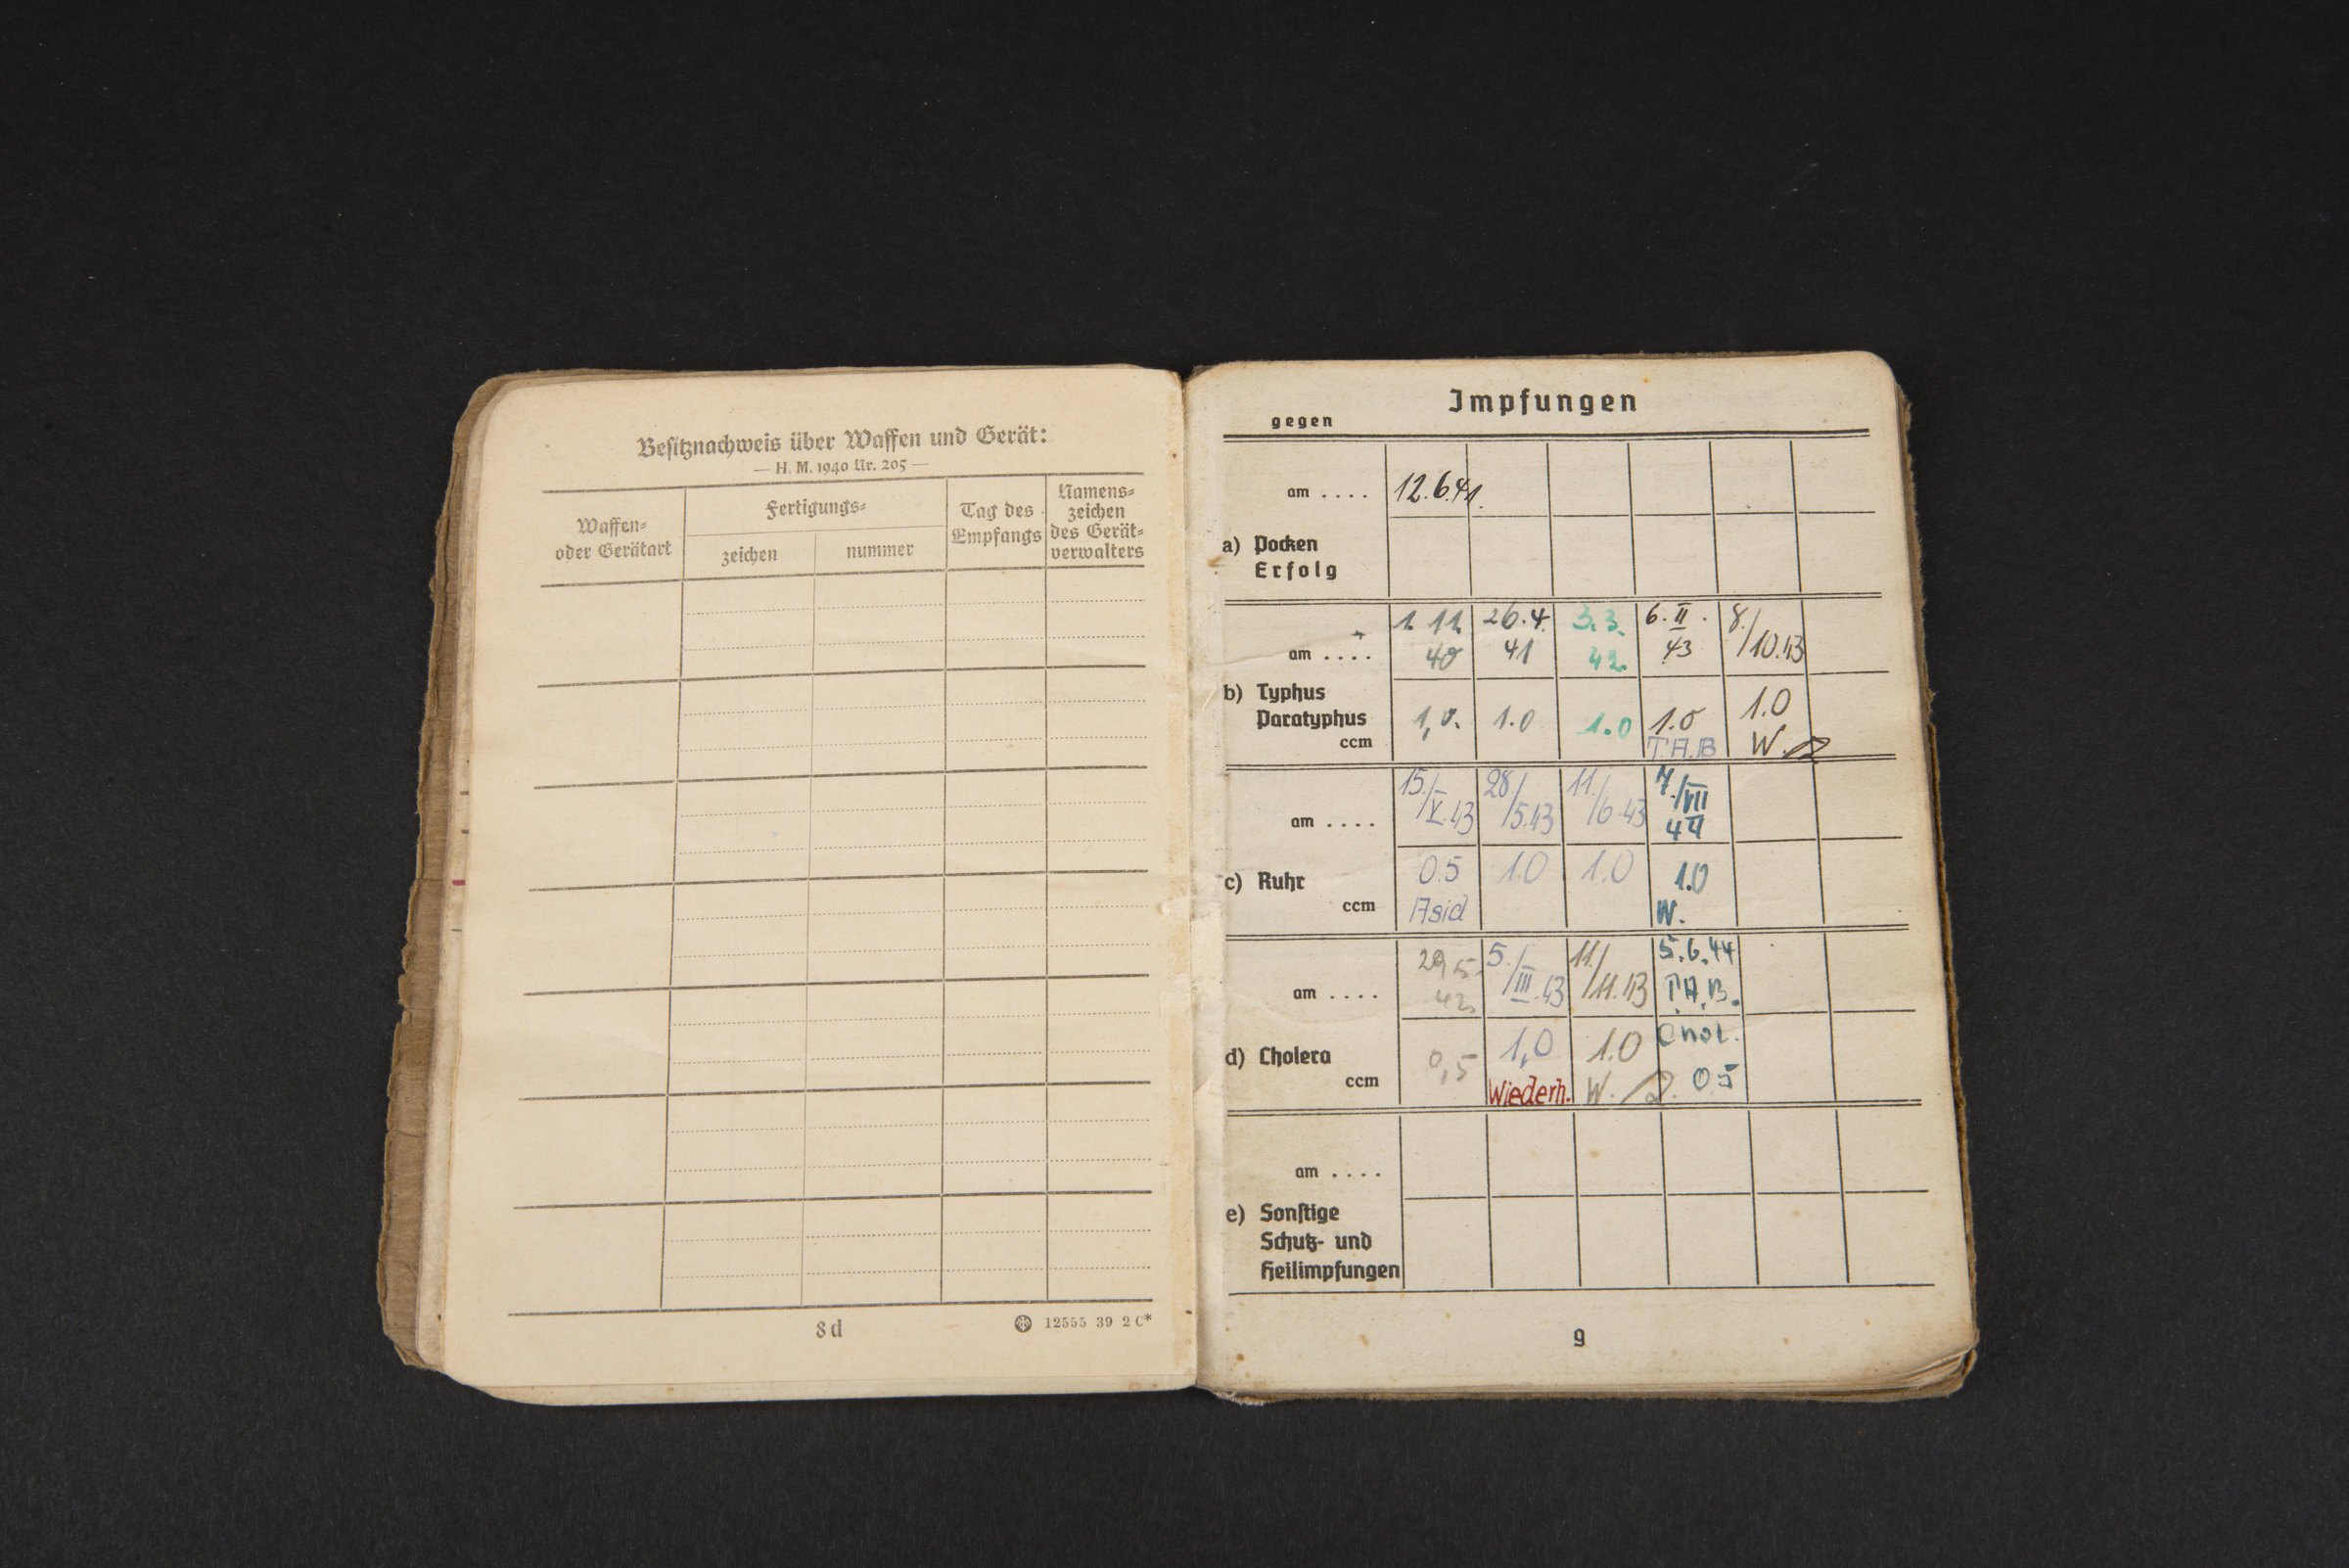 Besitznachweis über Waffen und Gerät:
— H. M. 1940 Nr. 205 —
Waffen-
oder Gerätart
Fertigungs-
zeichen
nummer
Tag des
Empfangs
Namens-
zeichen
des Gerät-
verwalters
8d
12555 39 2 C*
Impfungen
gegen
am ....
12.6.41.
a) Pocken
Erfolg
am ....
1. 11. 26.4. 3.3. 6.II. 8./
40 41 42. 43 /10.43
b) Typhus
Paratyphus
ccm
1,0. 1.0 1.0 1.0 1.0
T.A.B W.
am ....
15./ 28./ 11./ 7./VII
/V.43 /5.43 /6.43 44
c) Ruhr
ccm
0.5 1.0 1.0 1.0
Asid W.
am ....
29.5. 5./ 11./ 5.6.44
42. /III.43 /11.43 T.A.B.
d) Cholera
ccm
0,5 1,0 1.0 Chol.
Wiederh. W. 0.5
am ....
e) Sonstige
Schutz- und
Heilimpfungen
9